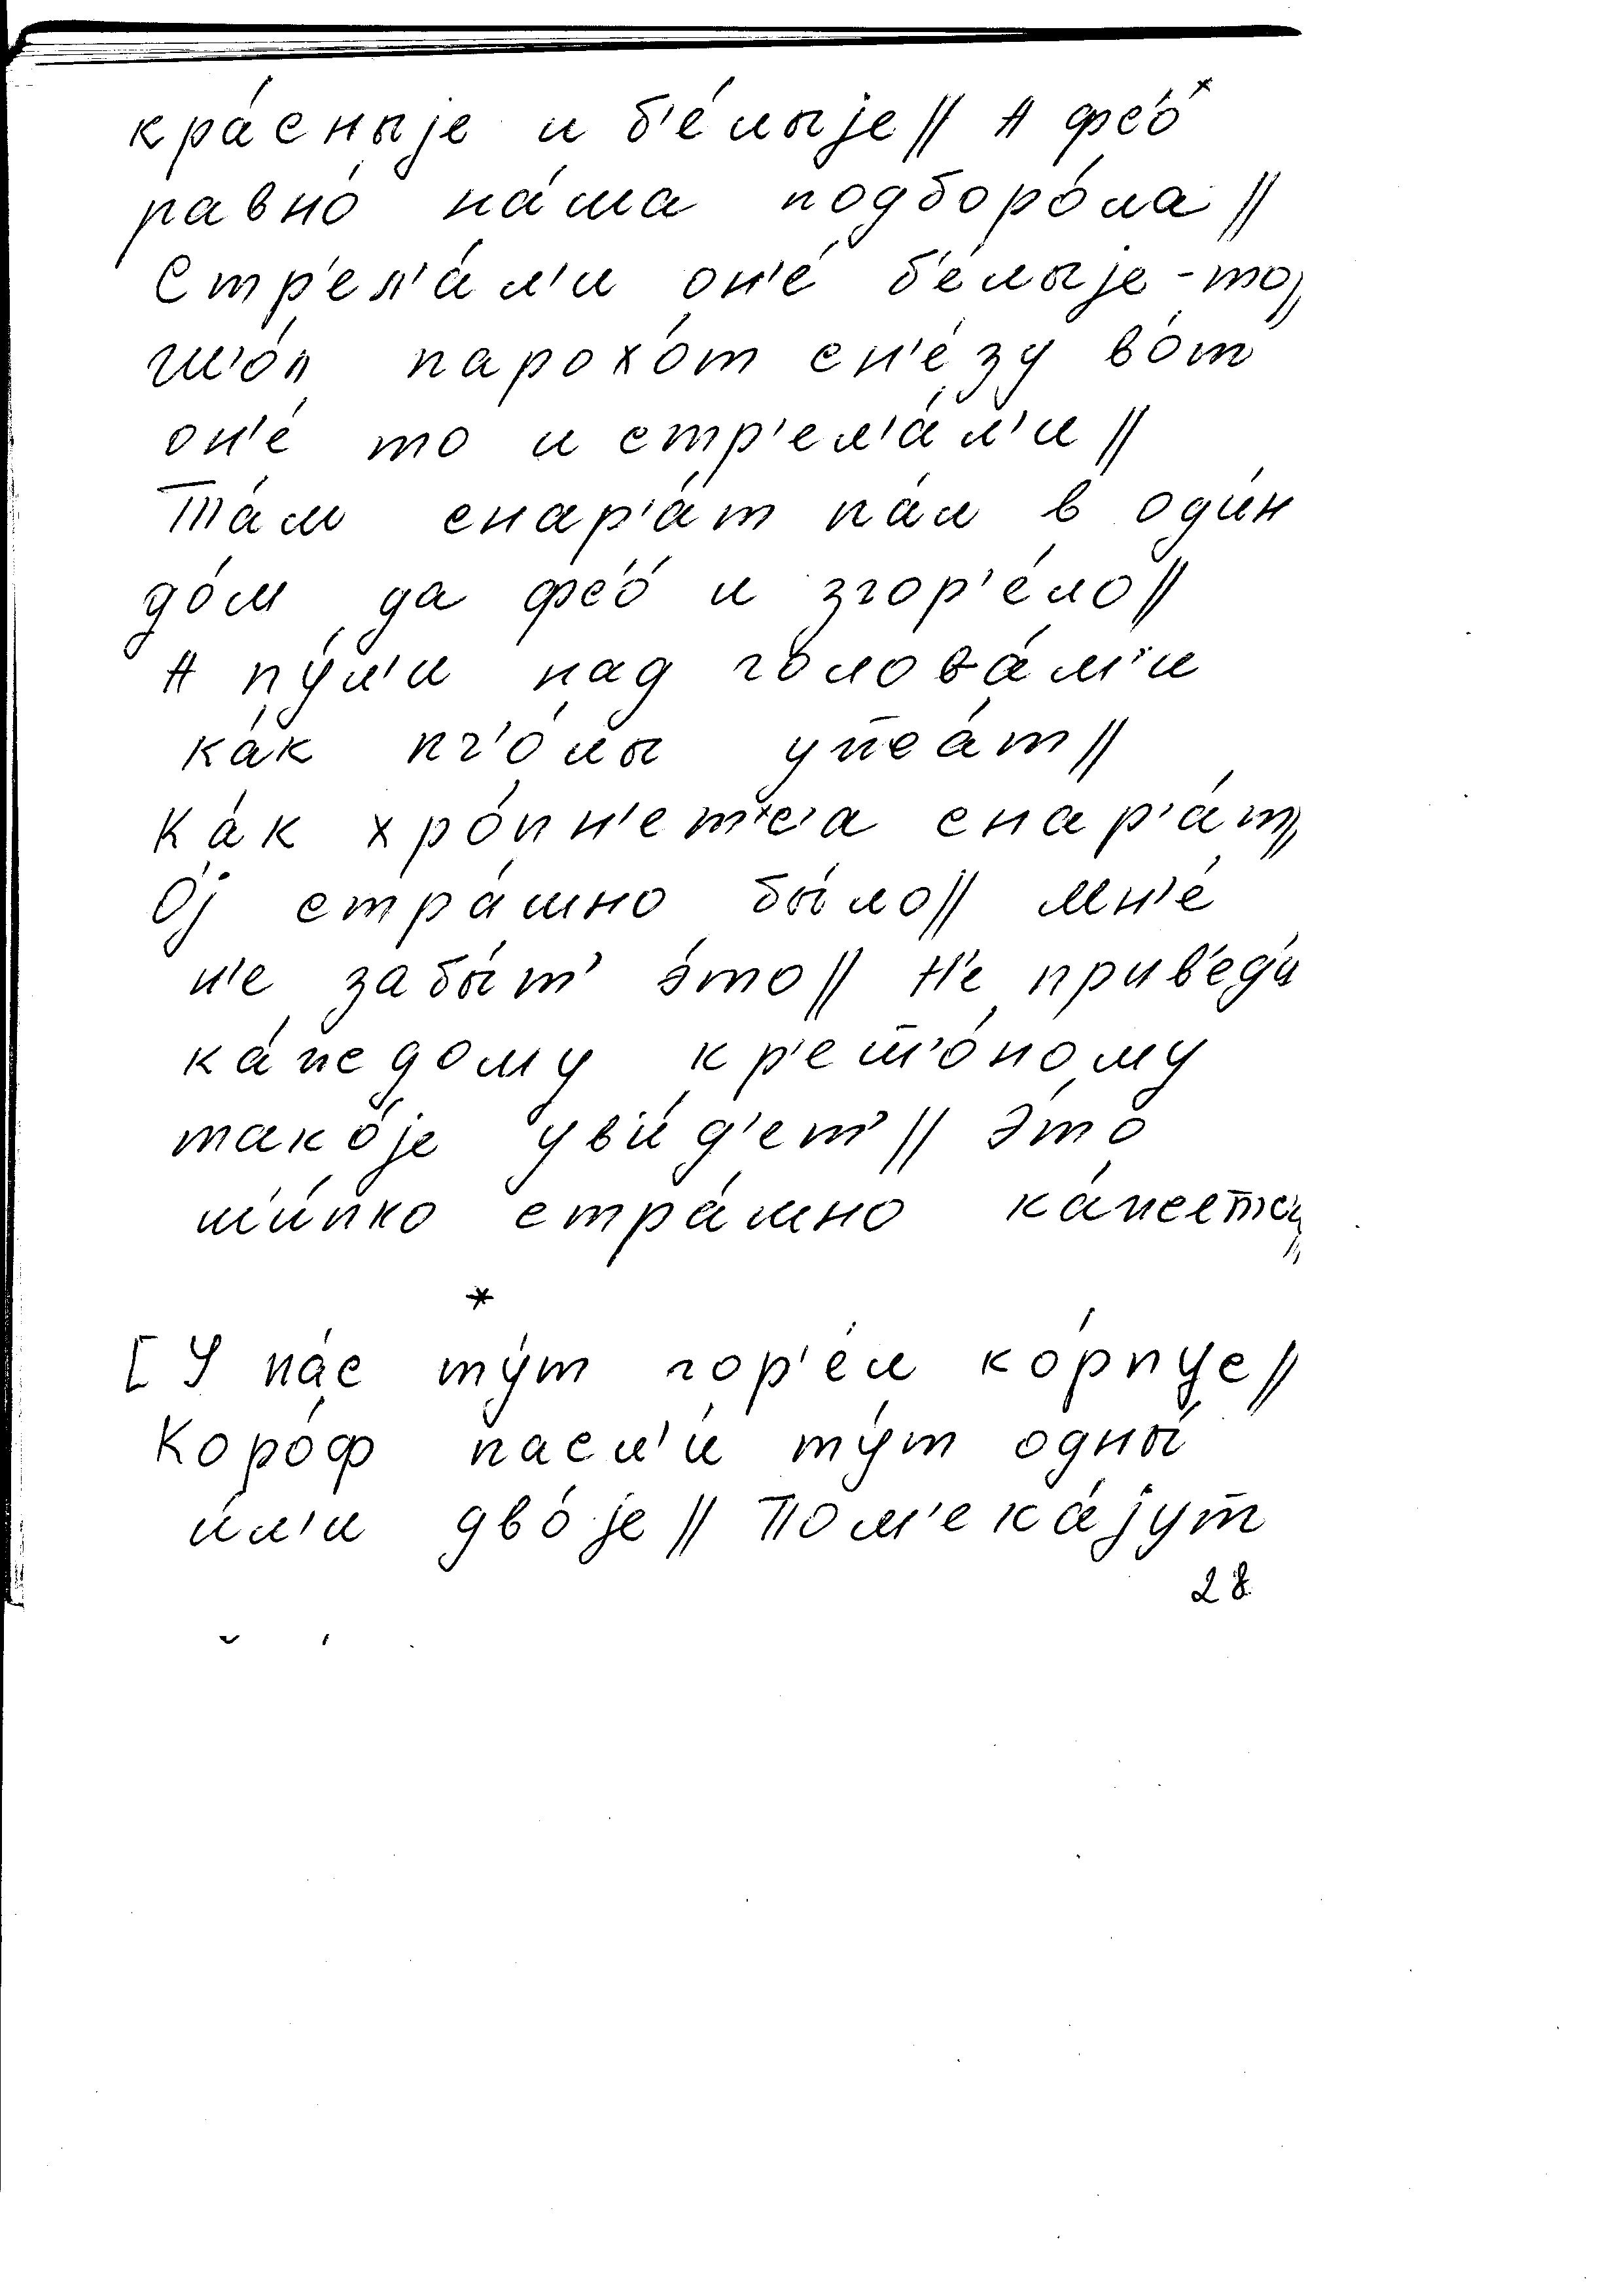 кра́сныjе и б'е́лыjе// А фс'о́*
равно́ на́ша подборо́ла//
Стр'ел'а́л'и он'е́ б'е́лыjе-то//
ш'о́л парохо́т сн'е́зу во́т
он'е́ то и стр'ел'а́л'и//
Та́м снар'а́т па́л в оди́н
до́м да фс'о́ и згор'е́ло//
А пу́л'и над голова́м'и
ка́к пч'о́лы жужжа́т//
Ка́к хро́пн'етс'а снар'а́т//
О́j стра́шно бы́ло// Мн'е́
н'е забы́т' э́то// Н'е прив'ед'и
ка́ждому кр'ешш'о́ному
тако́jе уви́д'ет'// Э́то
ши́пко стра́шно ка́жетса//
*
[У на́с ту́т гор'е́л ко́рпус//
Коро́ф пасл'и́ ту́т одны́
и́л'и дво́jе// Пом'ека́jут
28